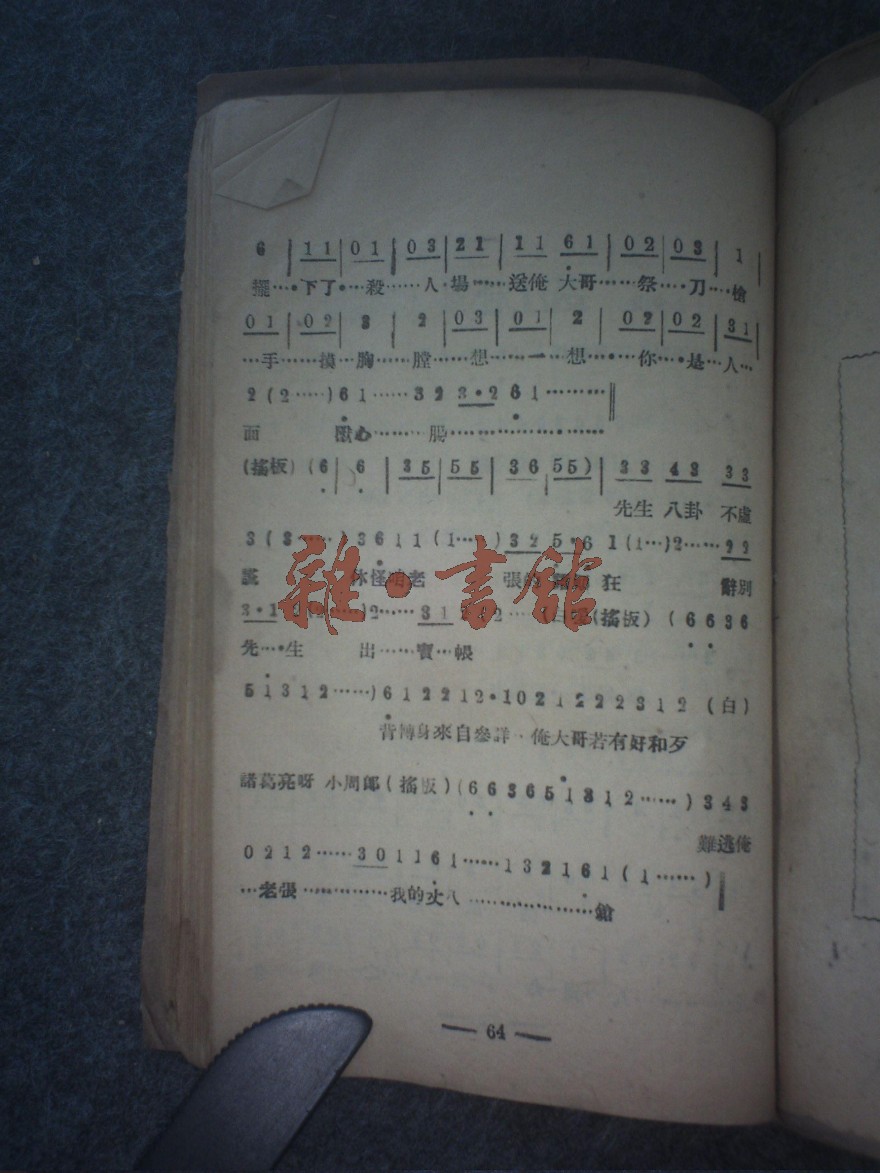 6 | 1 1 | 0 1 | 0 3 | 2 1 | 1 1 | 6 1 | 0 2 | 0 3 | 1 |
擺…·下了·…殺……人·場……送俺 大哥……祭…·刀…·槍
0 1 | 0 2 | 3 | 2 | 0 3 | 0 1 | 2 | 0 2 | 0 2 | 3 1
…手……摸…胸……膛……想……一…想……你…·是…人…
2 ( 2 …… ) 6 1 …… 3 2 3 · 2 6 1 ………
而 獸心……… 腸
(搖板) ( 6 | 6 | 3 5 | 5 5 | 3 6 | 5 5 ) | 3 3 4 3 3 3
先生 八卦 不虛
3 ( 3 …… ) 3 6 1 1 ( 1 … ) 3 2 5 · 6 1 ( 1 … ) 2 …… 2 2
休怪咱老 張 狂 辭別
(搖板) ( 6 6 3 6
先…·生 出……寶…帳
5 1 3 1 2 …… ) 6 1 2 2 1 2 · 1 0 2 1 2 2 2 3 1 2 (白)
背轉身來自參詳 · 俺大哥若有好和歹
諸葛亮呀 小周郎 (搖版) ( 6 6 3 6 5 1 3 1 2 …… ) 3 4 3
難逃俺
0 2 1 2 …… 3 0 1 1 6 1 …… 1 3 2 1 6 1 ( 1 …… )
…老張……………我的丈八………………鎗
— 64 —
雜·書館